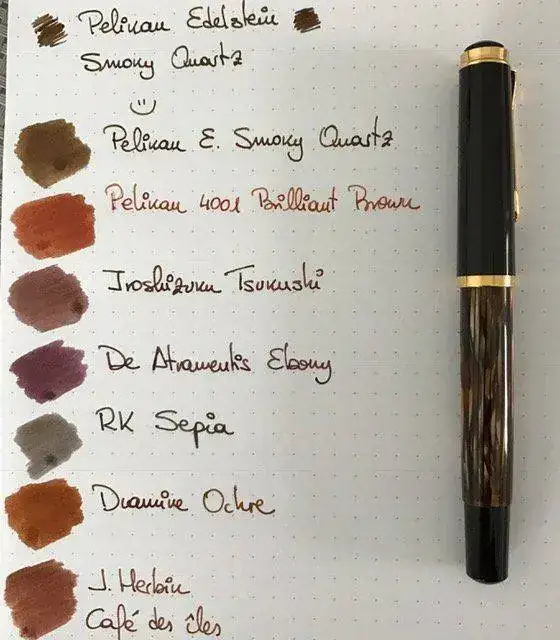 Pelikan Edelstein
Smoky Quartz
Pelikan E. Smoky Quartz
Pelikan 4001 Brilliant Brown
Iroshizuku Tsukushi
De Atramentis Ebony
RK Sepia
Diamine Ochre
J. Herbin
Café des îles